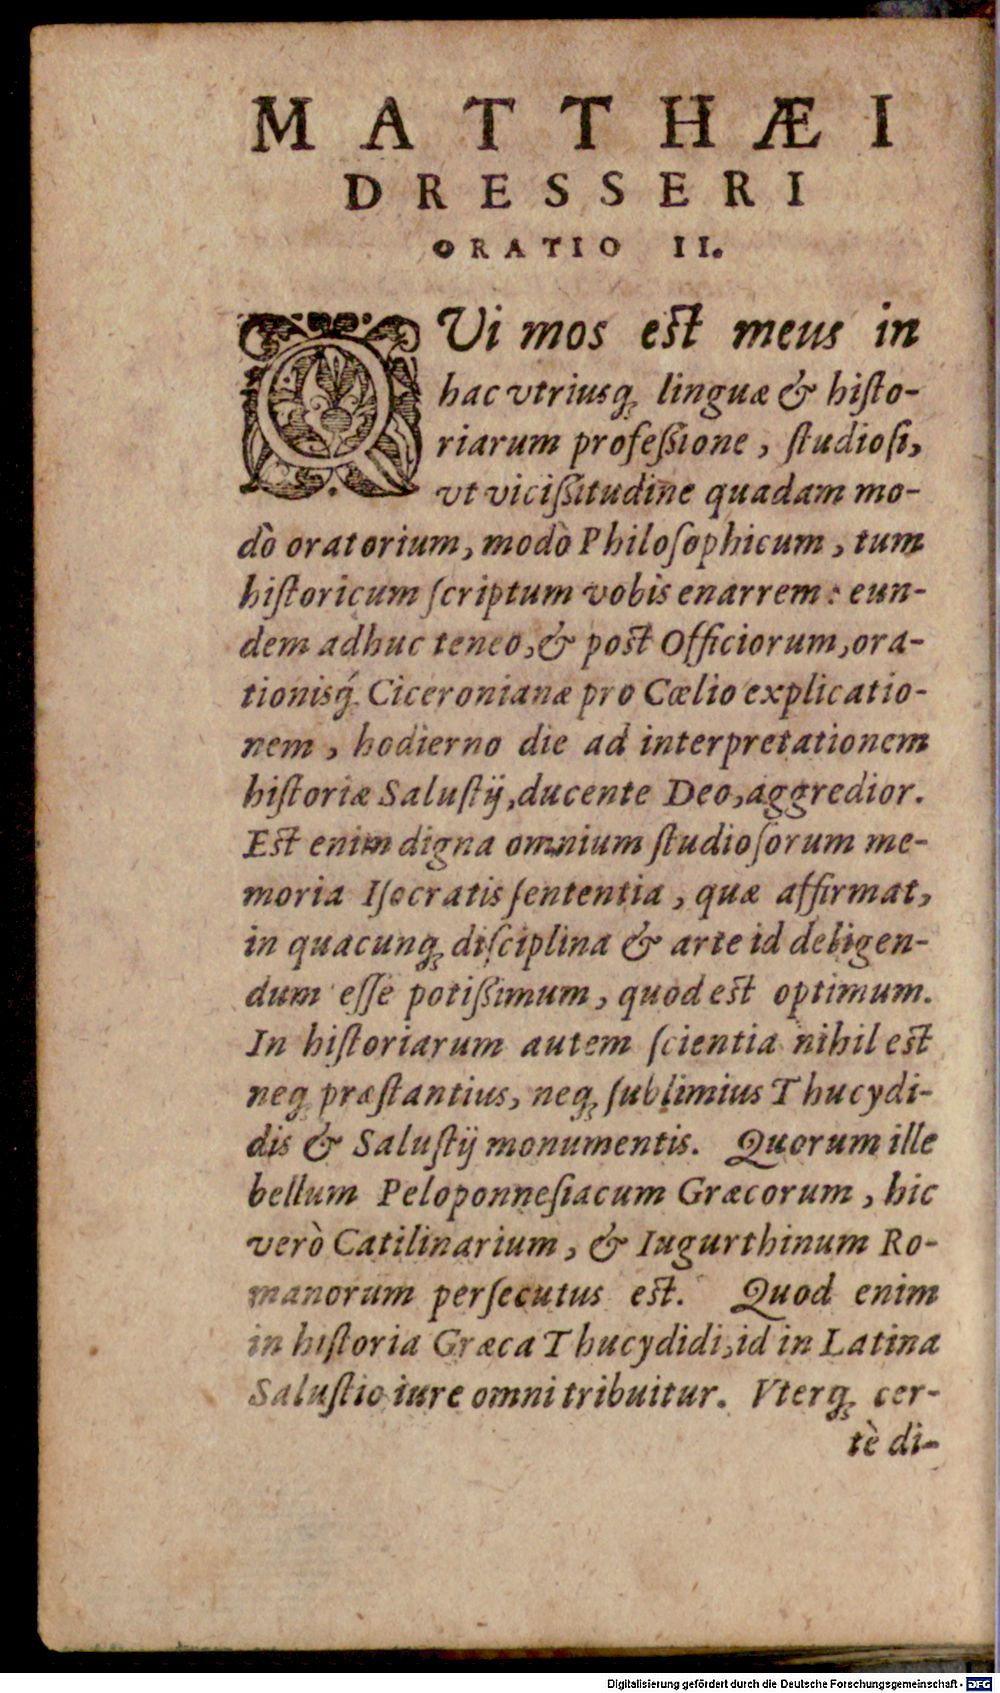 MATTHÆI
DRESSERI
ORATIO II.
QVi mos est meus in
hac vtriusq́; linguæ & histo-
riarum professione, studiosi,
vt vicissitudine quadam mo-
dò oratorium, modò Philosophicum, tum
historicum scriptum vobis enarrem: eun-
dem adhuc teneo, & post Officiorum, ora-
tionisq́; Ciceronianæ pro Cœlio explicatio-
nem, hodierno die ad interpretationem
historiæ Salustij, ducente Deo, aggredior.
Est enim digna omnium studiosorum me-
moria Isocratis sententia, quæ affirmat,
in quacunq; disciplina & arte id deligen-
dum esse potissimum, quod est optimum.
In historiarum autem scientia nihil est
neq; præstantius, neq; sublimius Thucydi-
dis & Salustij monumentis. Quorum ille
bellum Peloponnesiacum Græcorum, hic
verò Catilinarium, & Iugurthinum Ro-
manorum persecutus est. Quod enim
in historia Græca Thucydidi, id in Latina
Salustio iure omni tribuitur. Vterq; cer-
tè di-
Digitalisierung gefördert durch die Deutsche Forschungsgemeinschaft - DFG